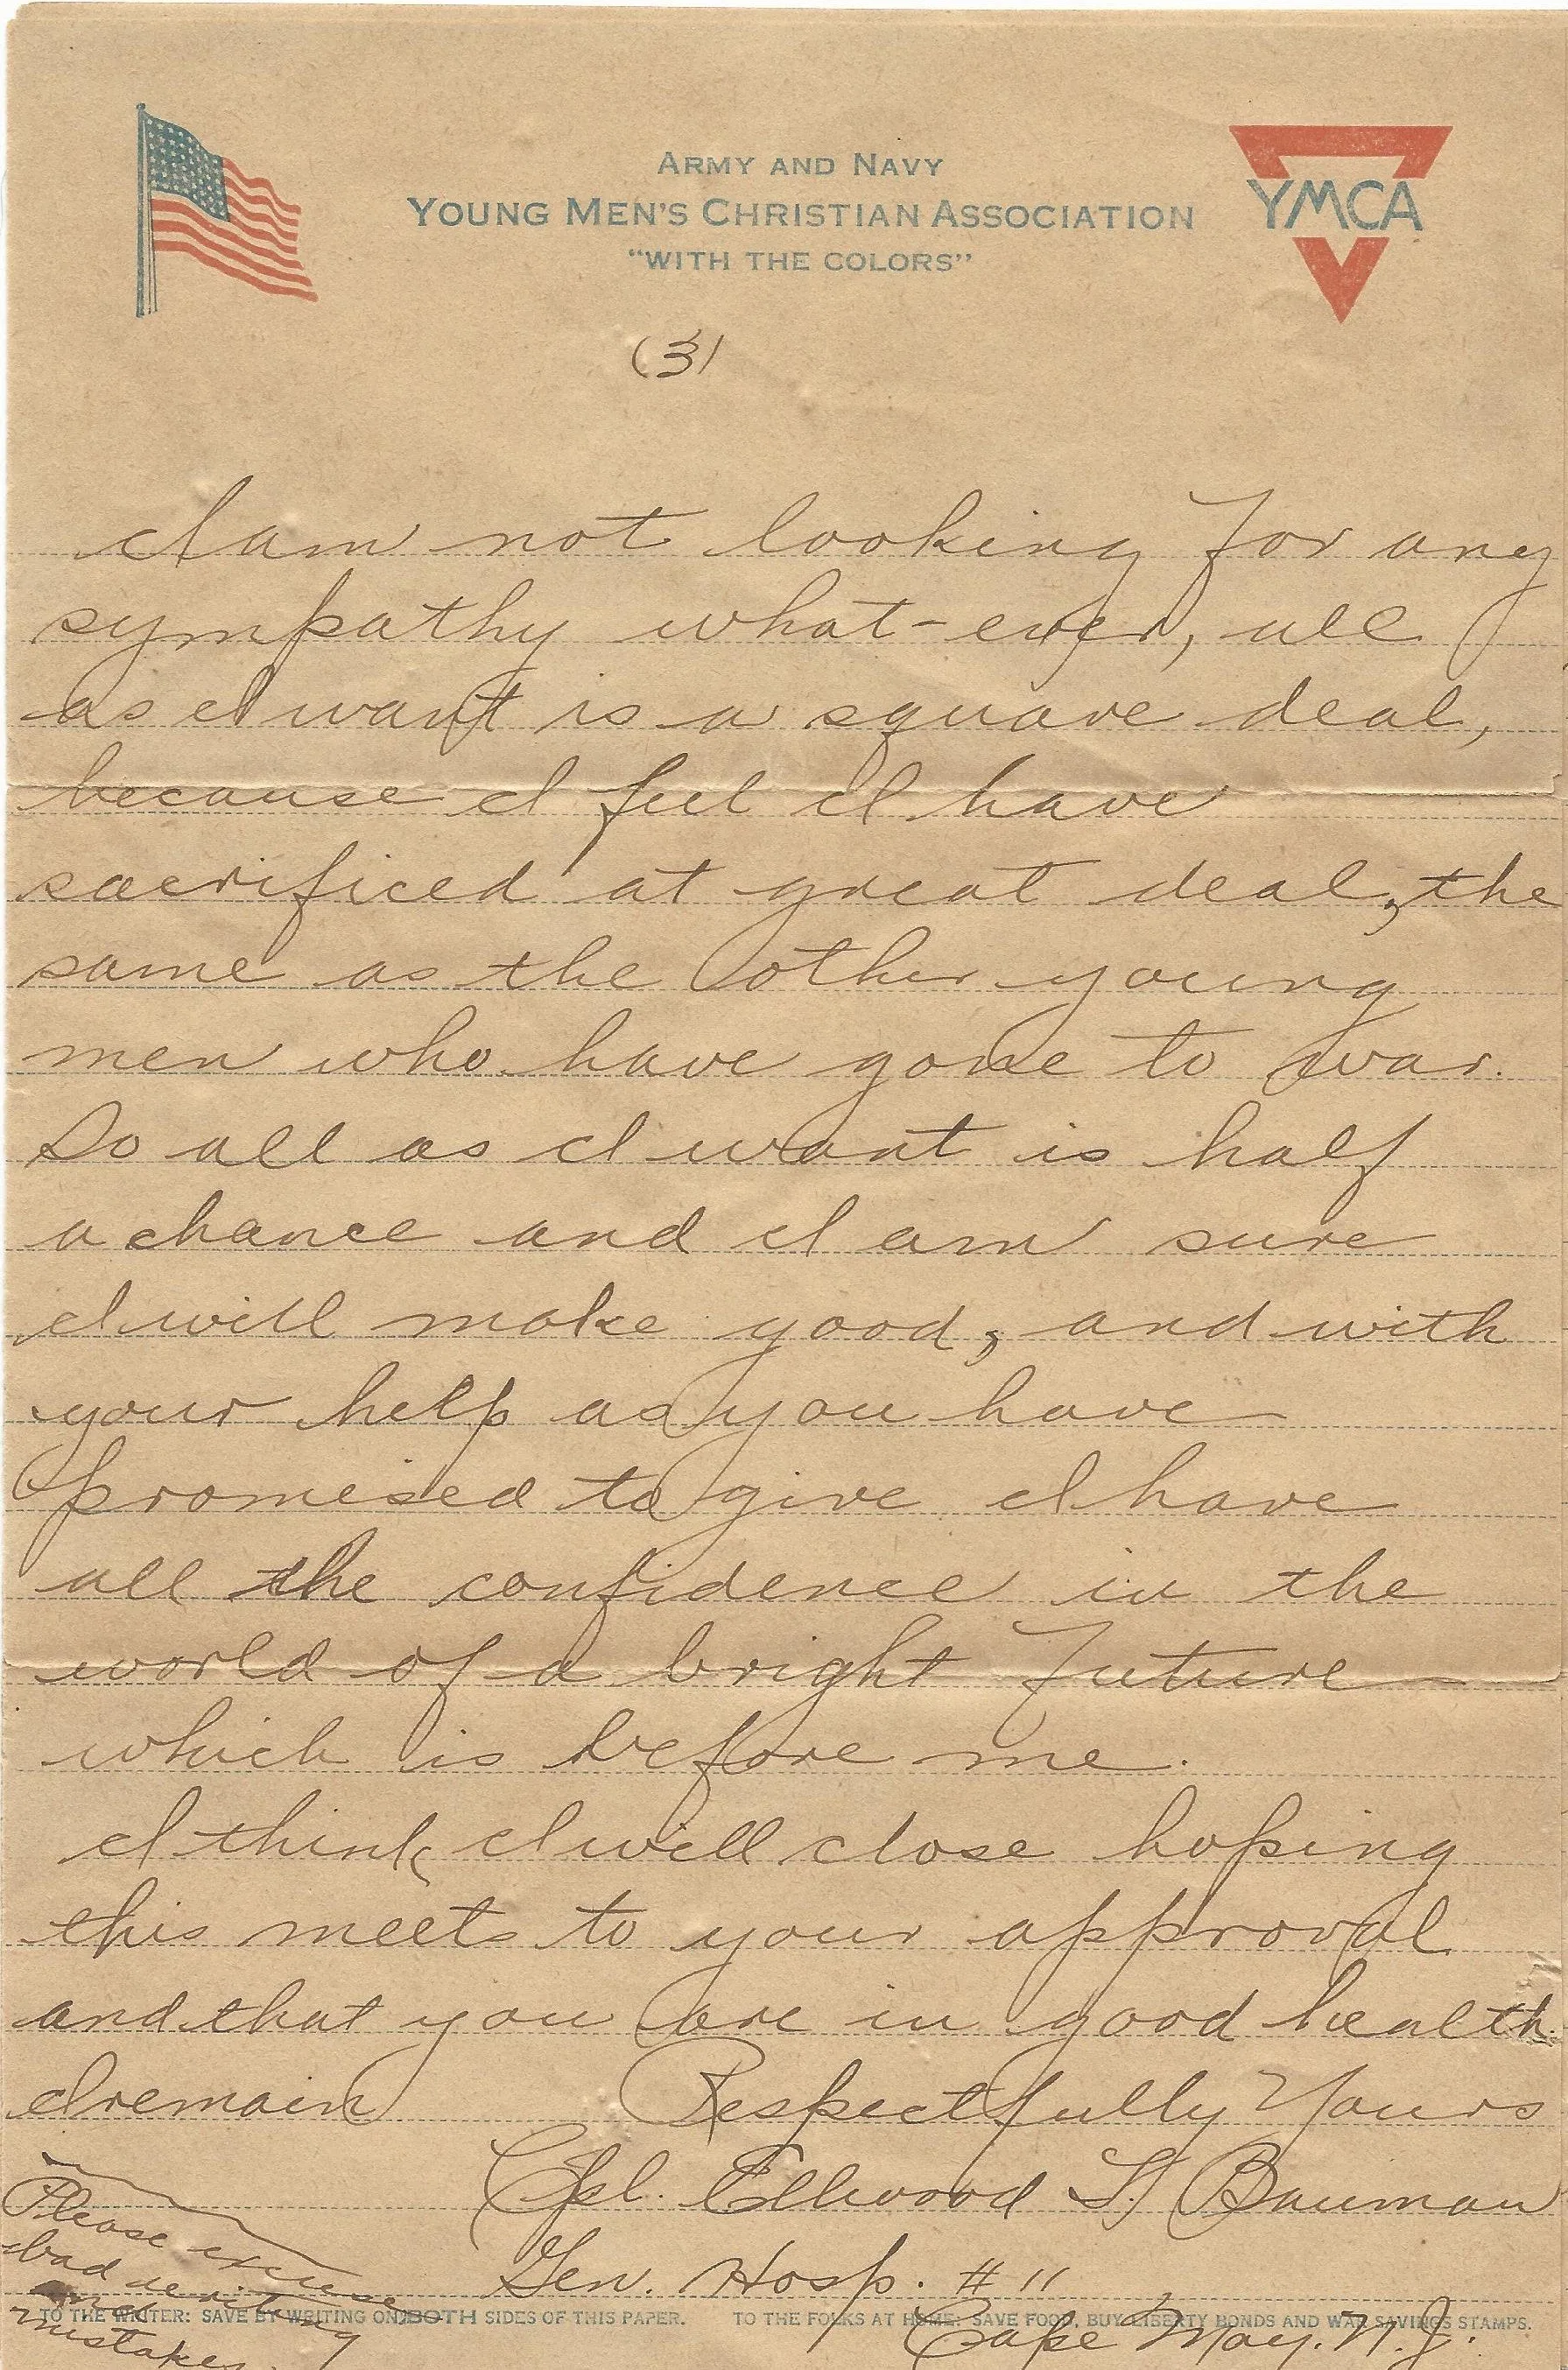 ARMY AND NAVY
YOUNG MEN'S CHRISTIAN ASSOCIATION
"WITH THE COLORS"
YMCA
(3)
I am not looking for any
sympathy what-ever, all
as I want is a square deal,
because I feel I have
sacrificed at great deal, the
same as the other young
men who have gone to war.
So all as I want is half
a chance and I am sure
I will make good, and with
your help as you have
promised to give I have
all the confidence in the
world of a bright future
which is before me.
I think I will close hoping
this meets to your approval
and that you are in good health.
I remain Respectfully Yours
Cpl. Ellwood S. Bauman
Gen. Hosp. # 11
Cape May. N.J.
Please excuse
bad writing
and
mistakes.
TO THE WRITER: SAVE BY WRITING ON BOTH SIDES OF THIS PAPER. TO THE FOLKS AT HOME: SAVE FOOD, BUY LIBERTY BONDS AND WAR SAVINGS STAMPS.